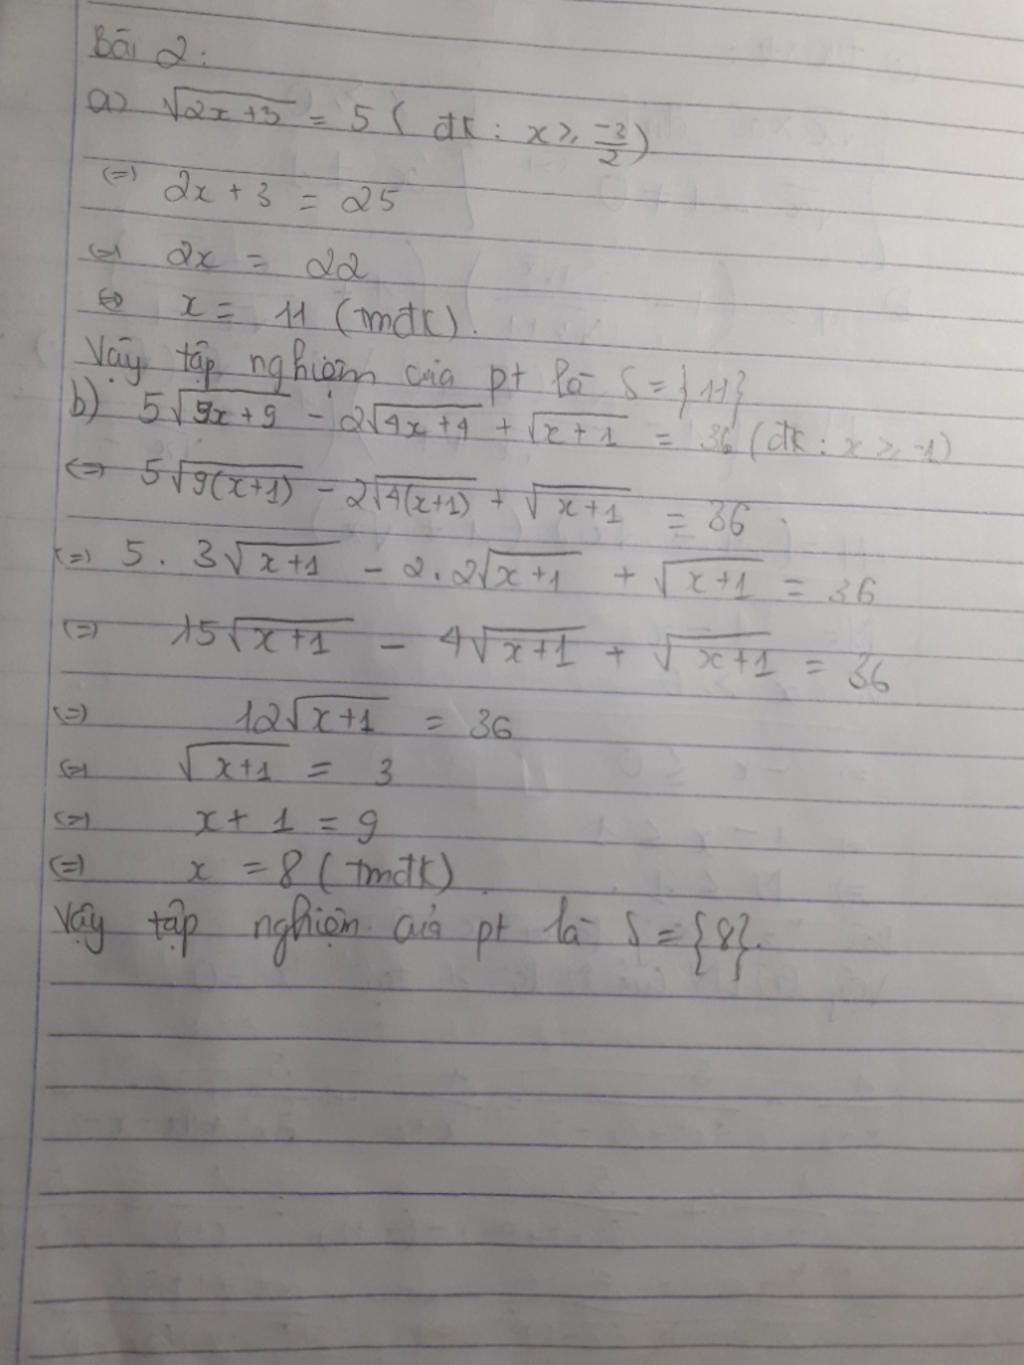 Bài 2:
a) √2x+3 = 5 ( đk : x ≥ -3/2)
<=> 2x + 3 = 25
<=> 2x = 22
<=> x = 11 (tmđk).
Vậy tập nghiệm của pt là S = {11}
b) 5√9x+9 - 2√4x+4 + √x+1 = 36 (đk : x ≥ -1)
<=> 5√9(x+1) - 2√4(x+1) + √x+1 = 36
<=> 5 . 3√x+1 - 2.2√x+1 + √x+1 = 36
<=> 15√x+1 - 4√x+1 + √x+1 = 36
<=> 12√x+1 = 36
<=> √x+1 = 3
<=> x + 1 = 9
<=> x = 8 ( tmđk)
Vậy tập nghiệm của pt là S = {8}.